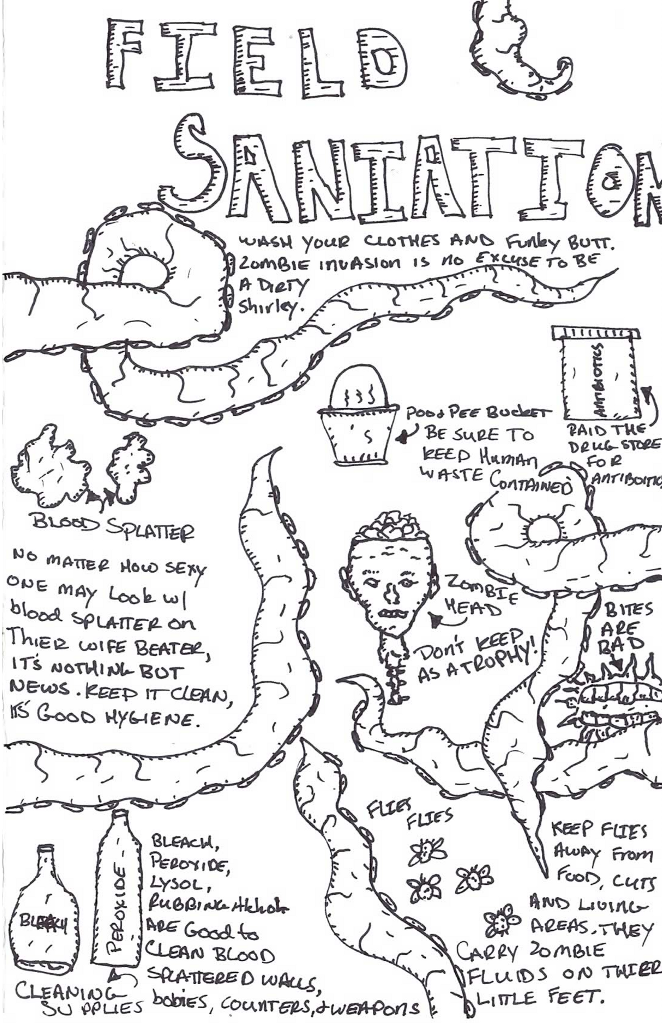 FIELD
SANIATION
WASH YOUR CLOTHES AND FUNKY BUTT.
ZOMBIE INVASION IS NO EXCUSE TO BE
A DIRTY
SHIRLEY.
ANTIBIOTICS
RAID THE
DRUG STORE
FOR
ANTIBOITICS
POO & PEE BUCKET
BE SURE TO
KEED HUMAN
WASTE CONTAINED
BLOOD SPLATTER
NO MATTER HOW SEXY
ONE MAY LOOK W/
BLOOD SPLATTER ON
THIER WIFE BEATER,
IT'S NOTHING BUT
NEWS. KEEP IT CLEAN,
IT'S GOOD HYGIENE.
ZOMBIE
HEAD
DON'T KEEP
AS A TROPHY!
BITES
ARE
BAD
FLIES FLIES
KEEP FLIES
AWAY FROM
FOOD, CUTS
AND LIVING
AREAS. THEY
CARRY ZOMBIE
FLUIDS ON THIER
LITTLE FEET.
BLEACH
PEROXIDE
CLEANING
SUPPLIES
BLEACH,
PEROXIDE,
LYSOL,
RUBBING Alchohol
ARE GOOD TO
CLEAN BLOOD
SPLATTERED WALLS,
BOBIES, COUNTERS, & WEAPONS